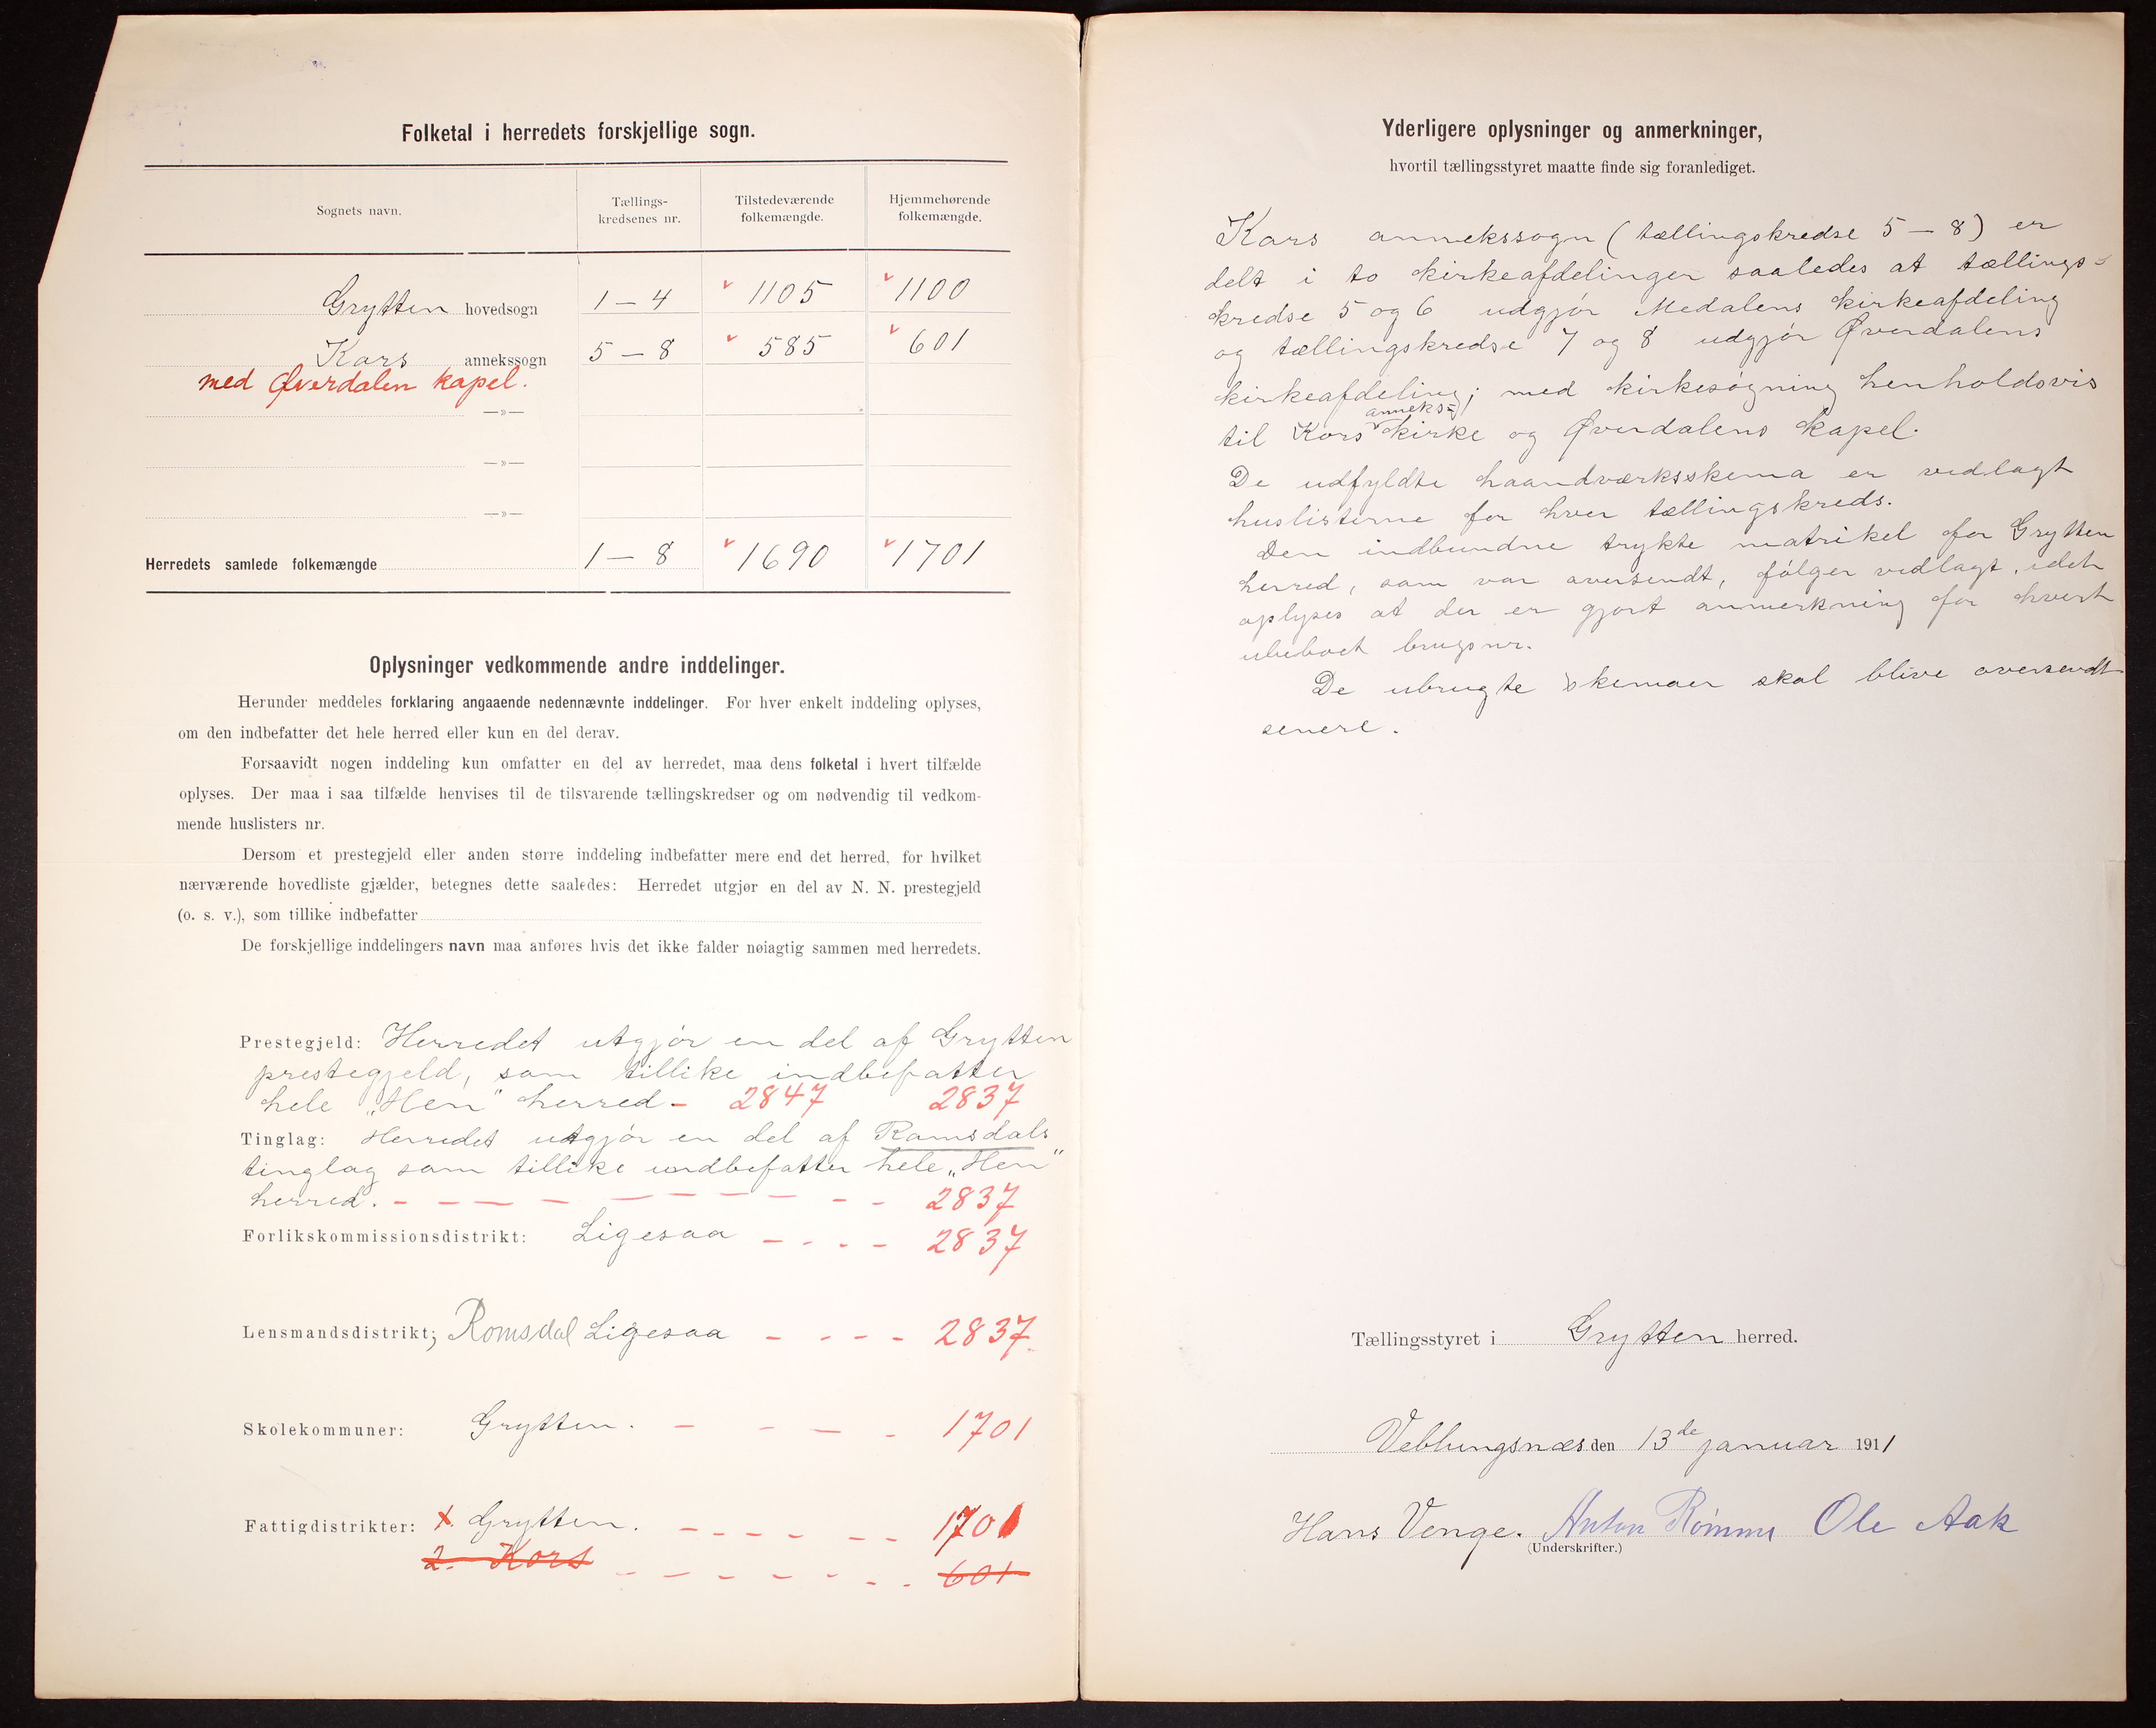 Folketal i herredets forskjellige sogn.
Sognets navn. Tællings-kredsenes nr. Tilstedeværende folkemængde. Hjemmehørende folkemængde.
Grytten hovedsogn 1 – 4 v 1105 v 1100
Kors annekssogn 5 – 8 v 585 v 601
med Øverdalen kapel.
—»—
—»—
—»—
Herredets samlede folkemængde 1 – 8 v 1690 v 1701
Oplysninger vedkommende andre inddelinger.
Herunder meddeles forklaring angaaende nedennævnte inddelinger. For hver enkelt inddeling oplyses,
om den indbefatter det hele herred eller kun en del derav.
Forsaavidt nogen inddeling kun omfatter en del av herredet, maa dens folketal i hvert tilfælde
oplyses. Der maa i saa tilfælde henvises til de tilsvarende tællingskredser og om nødvendig til vedkom-
mende huslisters nr.
Dersom et prestegjeld eller anden større inddeling indbefatter mere end det herred, for hvilket
nærværende hovedliste gjælder, betegnes dette saaledes: Herredet utgjør en del av N. N. prestegjeld
(o. s. v.), som tillike indbefatter
De forskjellige inddelingers navn maa anføres hvis det ikke falder nøiagtig sammen med herredets.
Prestegjeld: Herredet utgjør en del af Grytten
prestegjeld, som tillike indbefatter
hele „Hen" herred – 2847 2837
Tinglag: Herredet utgjør en del af Romsdals
tinglag som tillike indbefatter hele „Hen"
herred. – – – – – – – – – – 2837
Forlikskommissionsdistrikt: Ligesaa – - - – 2837
Lensmandsdistrikt; Romsdal Ligesaa – - - - 2837
Skolekommuner: Grytten. – – — - 1701
Fattigdistrikter: 1. Grytten. – – – – – – 1701
2. Kors – – – – – – – 601
Yderligere oplysninger og anmerkninger,
hvortil tællingsstyret maatte finde sig foranlediget.
Kors annekssogn (tællingskredse 5 – 8) er
delt i to kirkeafdelinger saaledes at tællings-
kredse 5 og 6 udgjør Medalens kirkeafdeling
og tællingskredse 7 og 8 udgjør Øverdalens
kirkeafdeling; med kirkesøgning henholdsvis
til Kors anneks-kirke og Øverdalens kapel.
De udfyldte haandværksskema er vedlagt
huslisterne for hver tællingskreds.
Den indbundne trykte matrikel for Grytten
herred, som var oversendt, følger vedlagt, idet
oplyses at der er gjort anmerkning for hvert
ubeboet brugsnr.
De ubrugte skemaer skal blive oversendt
senere.
Tællingsstyret i Grytten herred.
Veblungsnæs den 13de januar 1911
Hans Venge. Anton Rømme Ole Aak
(Underskrifter.)